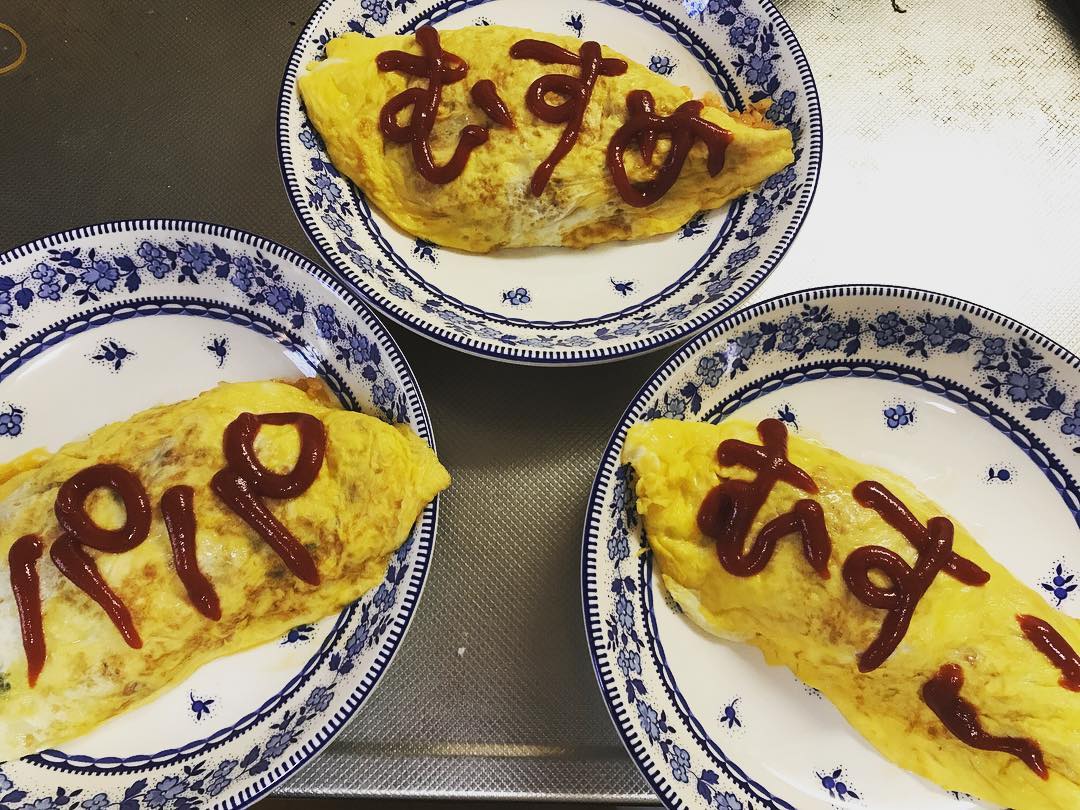 むすめ
パパ
むすこ